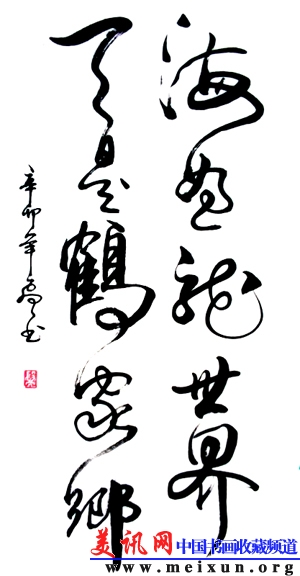 海為龍世界
天是鶴家鄉
辛卯年書
美讯网 中国书画收藏频道
www.meixun.org